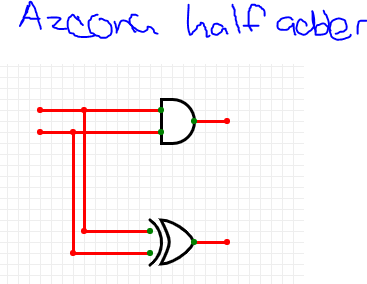 Azcorra half adder